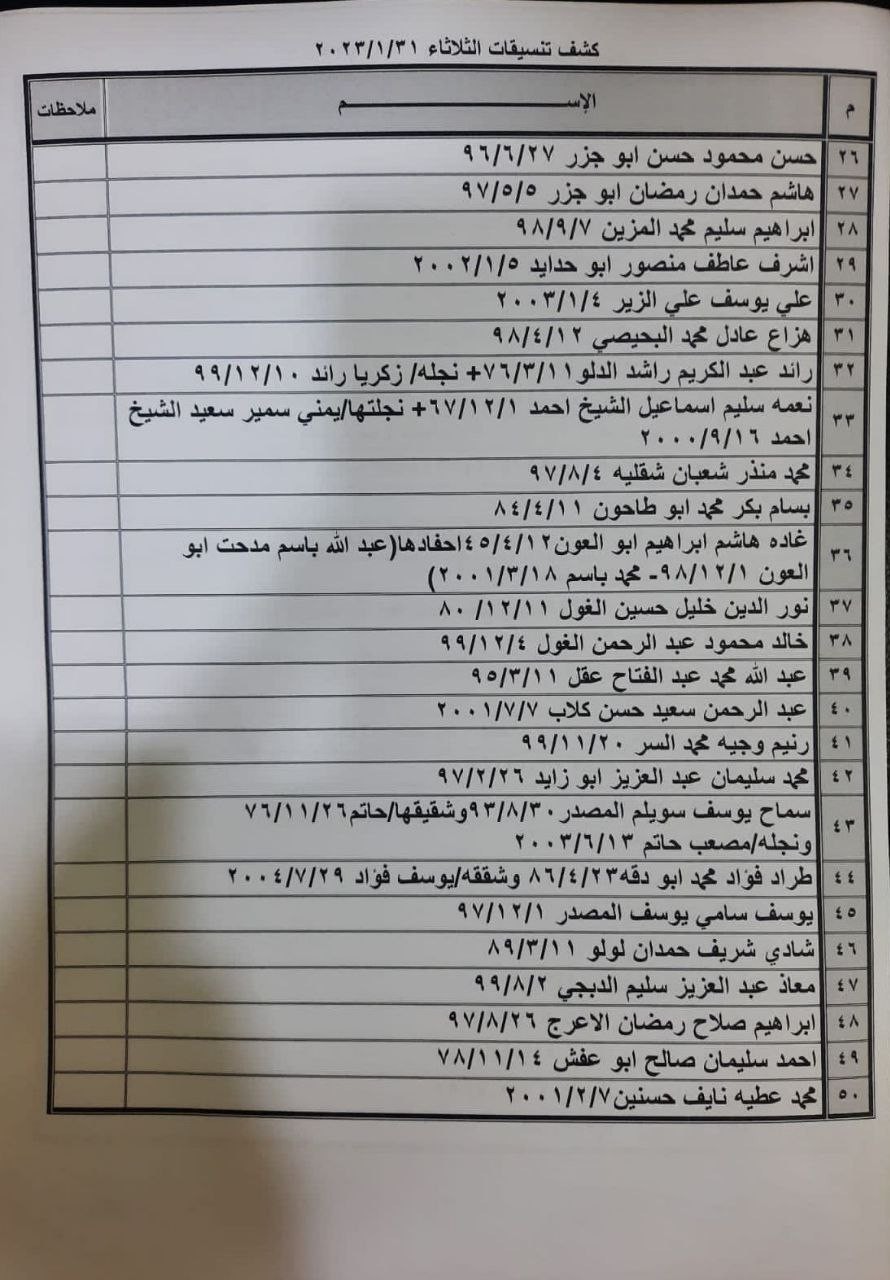 كشف تنسيقات الثلاثاء ٢٠٢٣/١/٣١
م الإســـم ملاحظات
٢٦ حسن محمود حسن ابو جزر ٩٦/٦/٢٧
٢٧ هاشم حمدان رمضان ابو جزر ٩٧/٥/٥
٢٨ ابراهيم سليم محمد المزين ٩٨/٩/٧
٢٩ اشرف عاطف منصور ابو حدايد ٢٠٠٢/١/٥
٣٠ علي يوسف علي الزير ٢٠٠٣/١/٤
٣١ هزاع عادل محمد البحيصي ٩٨/٤/١٢
٣٢ رائد عبد الكريم راشد الدلو٧٦/٣/١١+ نجله/ زكريا رائد ٩٩/١٢/١٠
٣٣ نعمه سليم اسماعيل الشيخ احمد ٦٧/١٢/١+ نجلتها/يمني سمير سعيد الشيخ
احمد ٢٠٠٠/٩/١٦
٣٤ محمد منذر شعبان شقليه ٩٧/٨/٤
٣٥ بسام بكر محمد ابو طاحون ٨٤/٤/١١
٣٦ غاده هاشم ابراهيم ابو العون٤٥/٤/١٢احفادها(عبد الله باسم مدحت ابو
العون ٩٨/١٢/١- محمد باسم ٢٠٠١/٣/١٨)
٣٧ نور الدين خليل حسين الغول ٨٠/١٢/١١
٣٨ خالد محمود عبد الرحمن الغول ٩٩/١٢/٤
٣٩ عبد الله محمد عبد الفتاح عقل ٩٥/٣/١١
٤٠ عبد الرحمن سعيد حسن كلاب ٢٠٠١/٧/٧
٤١ رنيم وجيه محمد السر ٩٩/١١/٢٠
٤٢ محمد سليمان عبد العزيز ابو زايد ٩٧/٢/٢٦
٤٣ سماح يوسف سويلم المصدر٩٣/٨/٣٠وشقيقها/حاتم٧٦/١١/٢٦
ونجله/مصعب حاتم ٢٠٠٣/٦/١٣
٤٤ طراد فؤاد محمد ابو دقه٨٦/٤/٢٣ وشققه/يوسف فؤاد ٢٠٠٤/٧/٢٩
٤٥ يوسف سامي يوسف المصدر ٩٧/١٢/١
٤٦ شادي شريف حمدان لولو ٨٩/٣/١١
٤٧ معاذ عبد العزيز سليم الدبجي ٩٩/٨/٢
٤٨ ابراهيم صلاح رمضان الاعرج ٩٧/٨/٢٦
٤٩ احمد سليمان صالح ابو عفش ٧٨/١١/١٤
٥٠ محمد عطيه نايف حسنين٢٠٠١/٢/٧